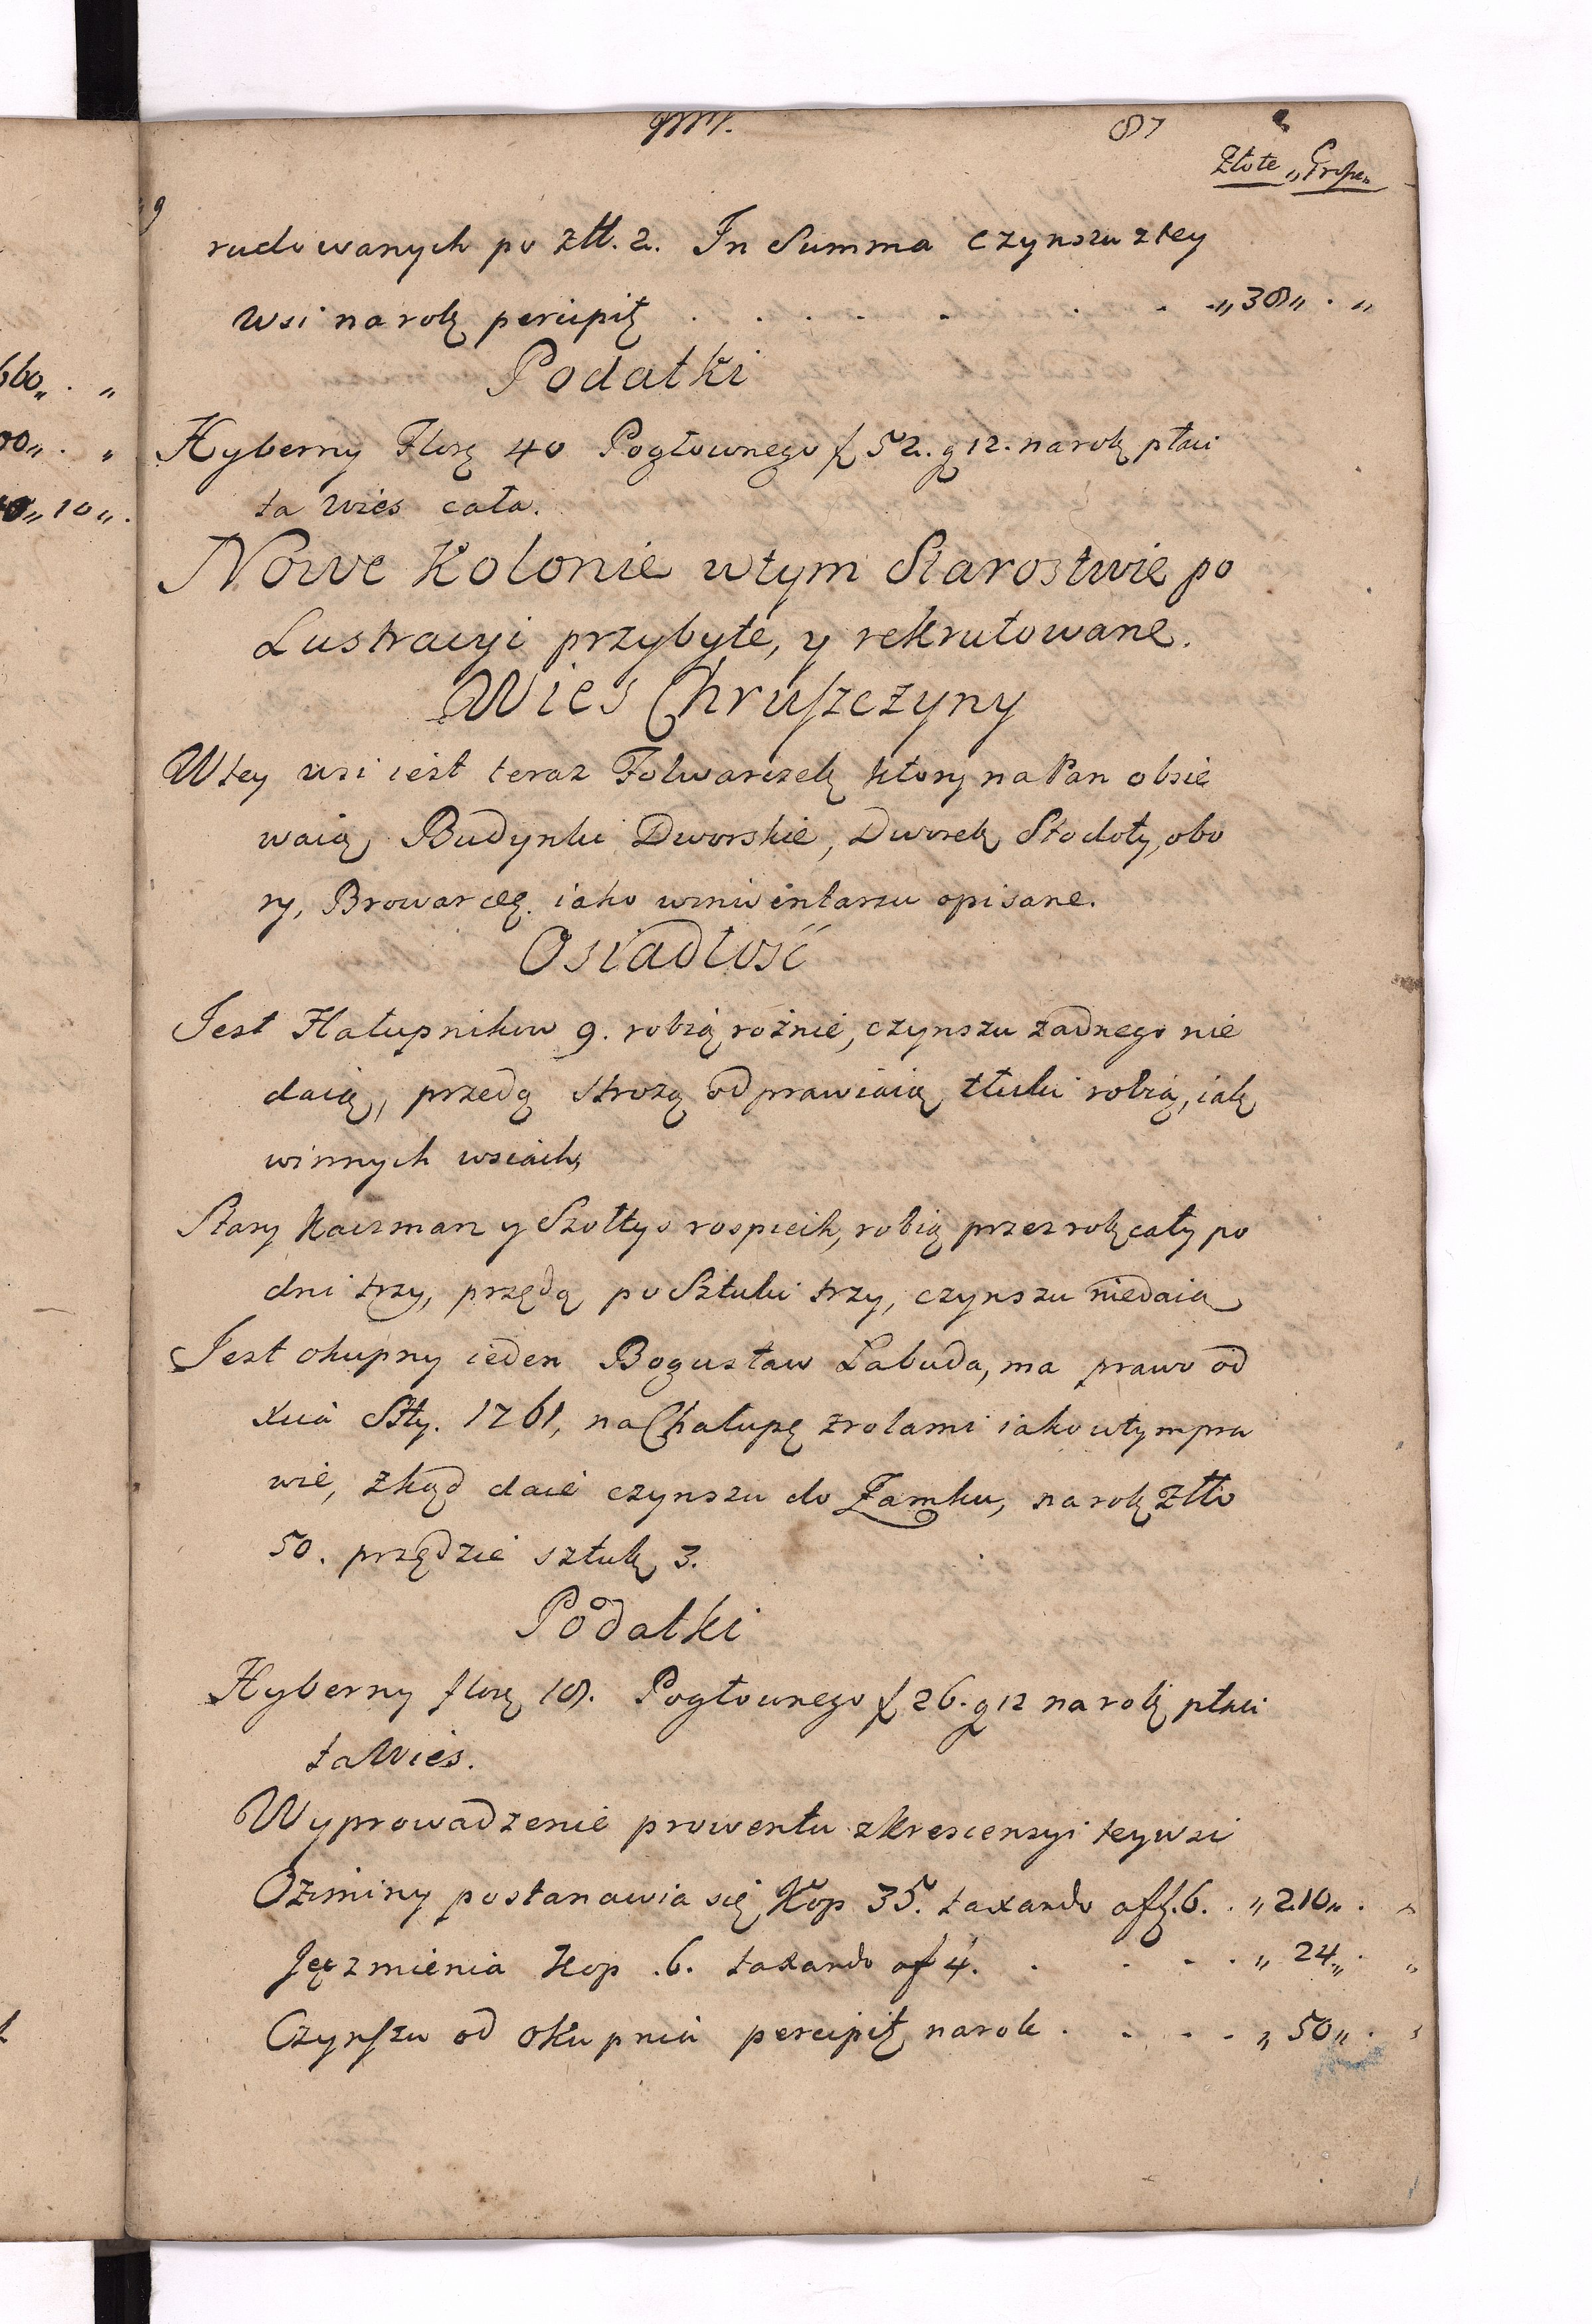 87
Złote „ Grosze
rudowanych po złł. 2. In Summa czynszu z tey
wsi na rok percipit . . . . . . . „ 38 „ . „
Podatki
Hyberny Flor 40 Pogłownego f 52. g 12. na rok płaci
ta Wies cała.
Nowe Kolonie w tym Starostwie po
Lustracyi przybyłe, y rekrutowane.
Wies Chruszczyny
W tey wsi iest teraz Folwarczek ktory na Pan obsie
waią, Budynki Dworskie, Dworek Stodoły, obo
ry, Browar etc. iako w inwentarzu opisane.
Osiadłość
Jest Hałupnikow 9. robią rożnie, czynszu zadnego nie
daią, przędą strozą odprawiaią, tłuki robią, iak
w innych wsiach,
Stary Kaczmarz y Szołtys rospicih, robią przez rok cały po
dni trzy, przędą po Sztuki trzy, czynszu niedaią
Jest okupny ieden Bogusław Labuda, ma prawo od
Xcia Stty. 1761, na Chałupę z rolami iako w tym pra
wie, zkąd daie czynszu do Zamku, na rok Złło
50. przędzie sztuk 3.
Podatki
Hyberny flor 18. Pogłownego f 26. g 12 na rok płaci
ta Wies.
Wyprowadzenie prowentu z krescensyi tey wsi
Oziminy postanawia się Kop 35. taxando a f. 6. . „ 210 „ .
Jęczmienia Kop .6. taxando a f 4. . . . . „ 24 „ . „
Czynszu od okupnia percipit na rok . . . . „ 50 „ .
660 „ . „
00 „ . „
10 „ .